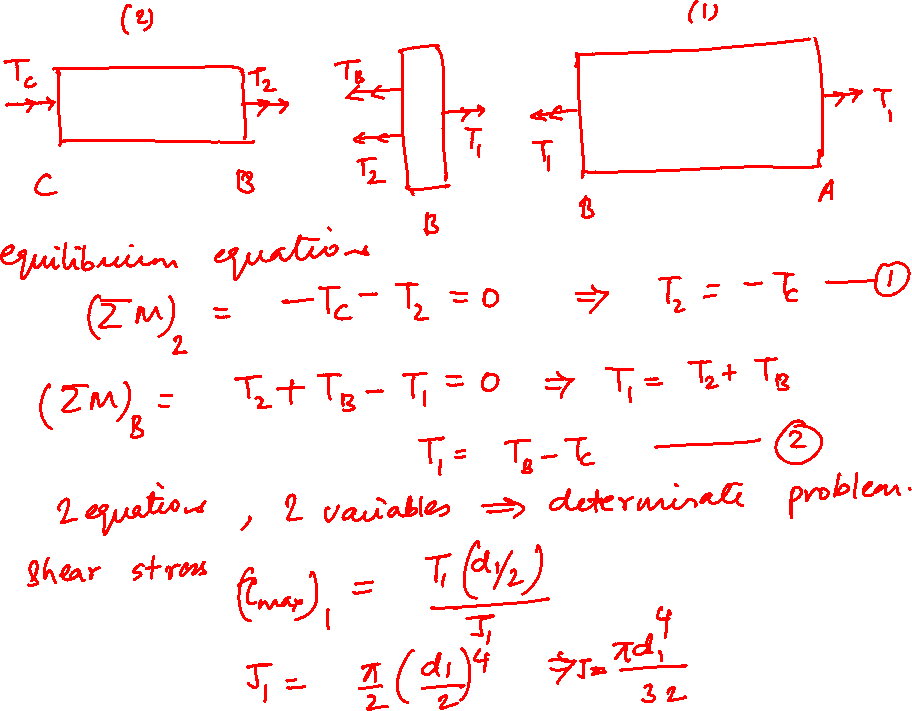 (2) (1)
T_C T_2 T_B T_1 T_1 T_1
T_2
C B B B A
equilibrium equations
(ΣM)_2 = -T_C - T_2 = 0 ⇒ T_2 = -T_C — ①
(ΣM)_B = T_2 + T_B - T_1 = 0 ⇒ T_1 = T_2 + T_B
T_1 = T_B - T_C — ②
2 equations, 2 variables ⇒ determinate problem.
Shear stress (τ_max)_1 = T_1(d_1/2)/J_1
J_1 = π/2 (d_1/2)^4 ⇒ J = πd_1^4/32